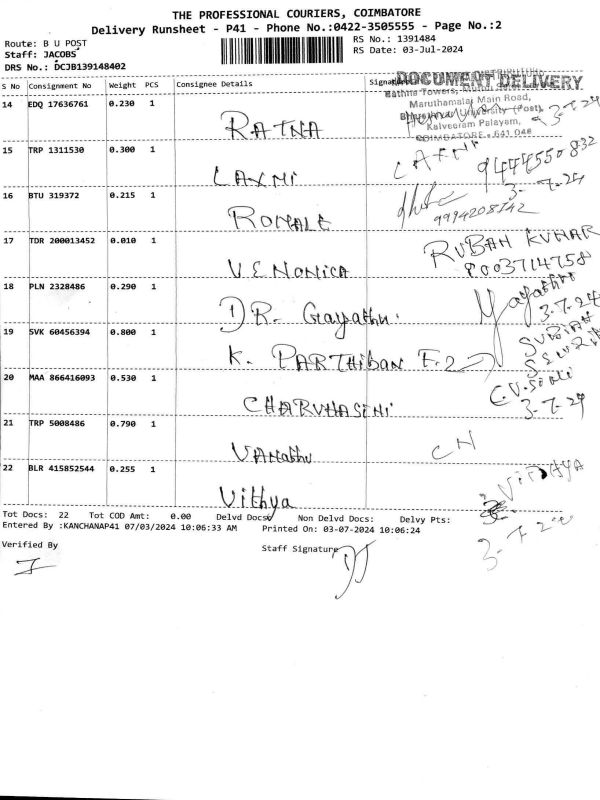 THE PROFESSIONAL COURIERS, COIMBATORE
Delivery Runsheet - P41 - Phone No.:0422-3505555 - Page No.:2
Route: B U POST
RS No.: 1391484
Staff: JACOBS
RS Date: 03-Jul-2024
DRS No.: DCJB139148402
S No Consignment No Weight PCS Consignee Details Signature
DOCUMENT DELIVERY
Rathna Towers,
Maruthamalai Main Road,
Bharathiar University (Post),
Kalveeram Palayam,
COIMBATORE - 641 046
14 EDQ 17636761 0.230 1 RATNA 3-7-24
15 TRP 1311530 0.300 1 LAXMI 9444550832
3-7-24
16 BTU 319372 0.215 1 RONALE 9994208342
17 TDR 200013452 0.010 1 VENONICA RUBAN KUMAR
8003714758
18 PLN 2328486 0.290 1 DR. Gayathri. Gayathri
3.7.24
19 SVK 60456394 0.800 1 K. PARTHIBAN F.2
20 MAA 866416093 0.530 1 CHARUHASINI
3-7-24
21 TRP 5008486 0.790 1 VAMathi CN
22 BLR 415852544 0.255 1 Vithya
Tot Docs: 22 Tot COD Amt: 0.00 Delvd Docs: Non Delvd Docs: Delvy Pts:
Entered By :KANCHANAP41 07/03/2024 10:06:33 AM Printed On: 03-07-2024 10:06:24
Verified By Staff Signature